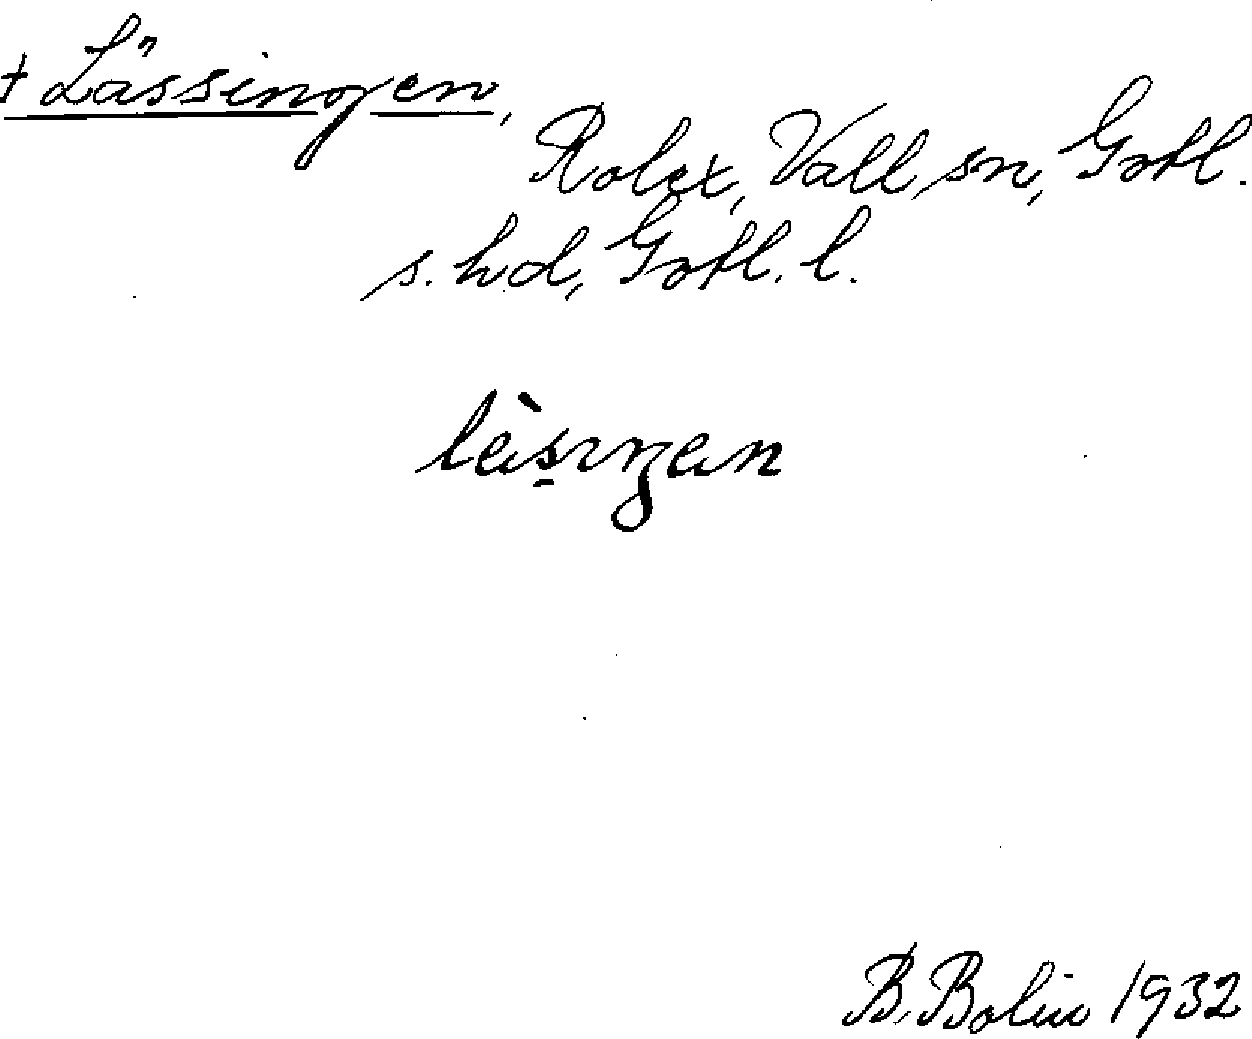 † Lässingen,
Rolex, Vall sn, Gotl.
s. hd, Gotl. l.
B. Bolin 1932